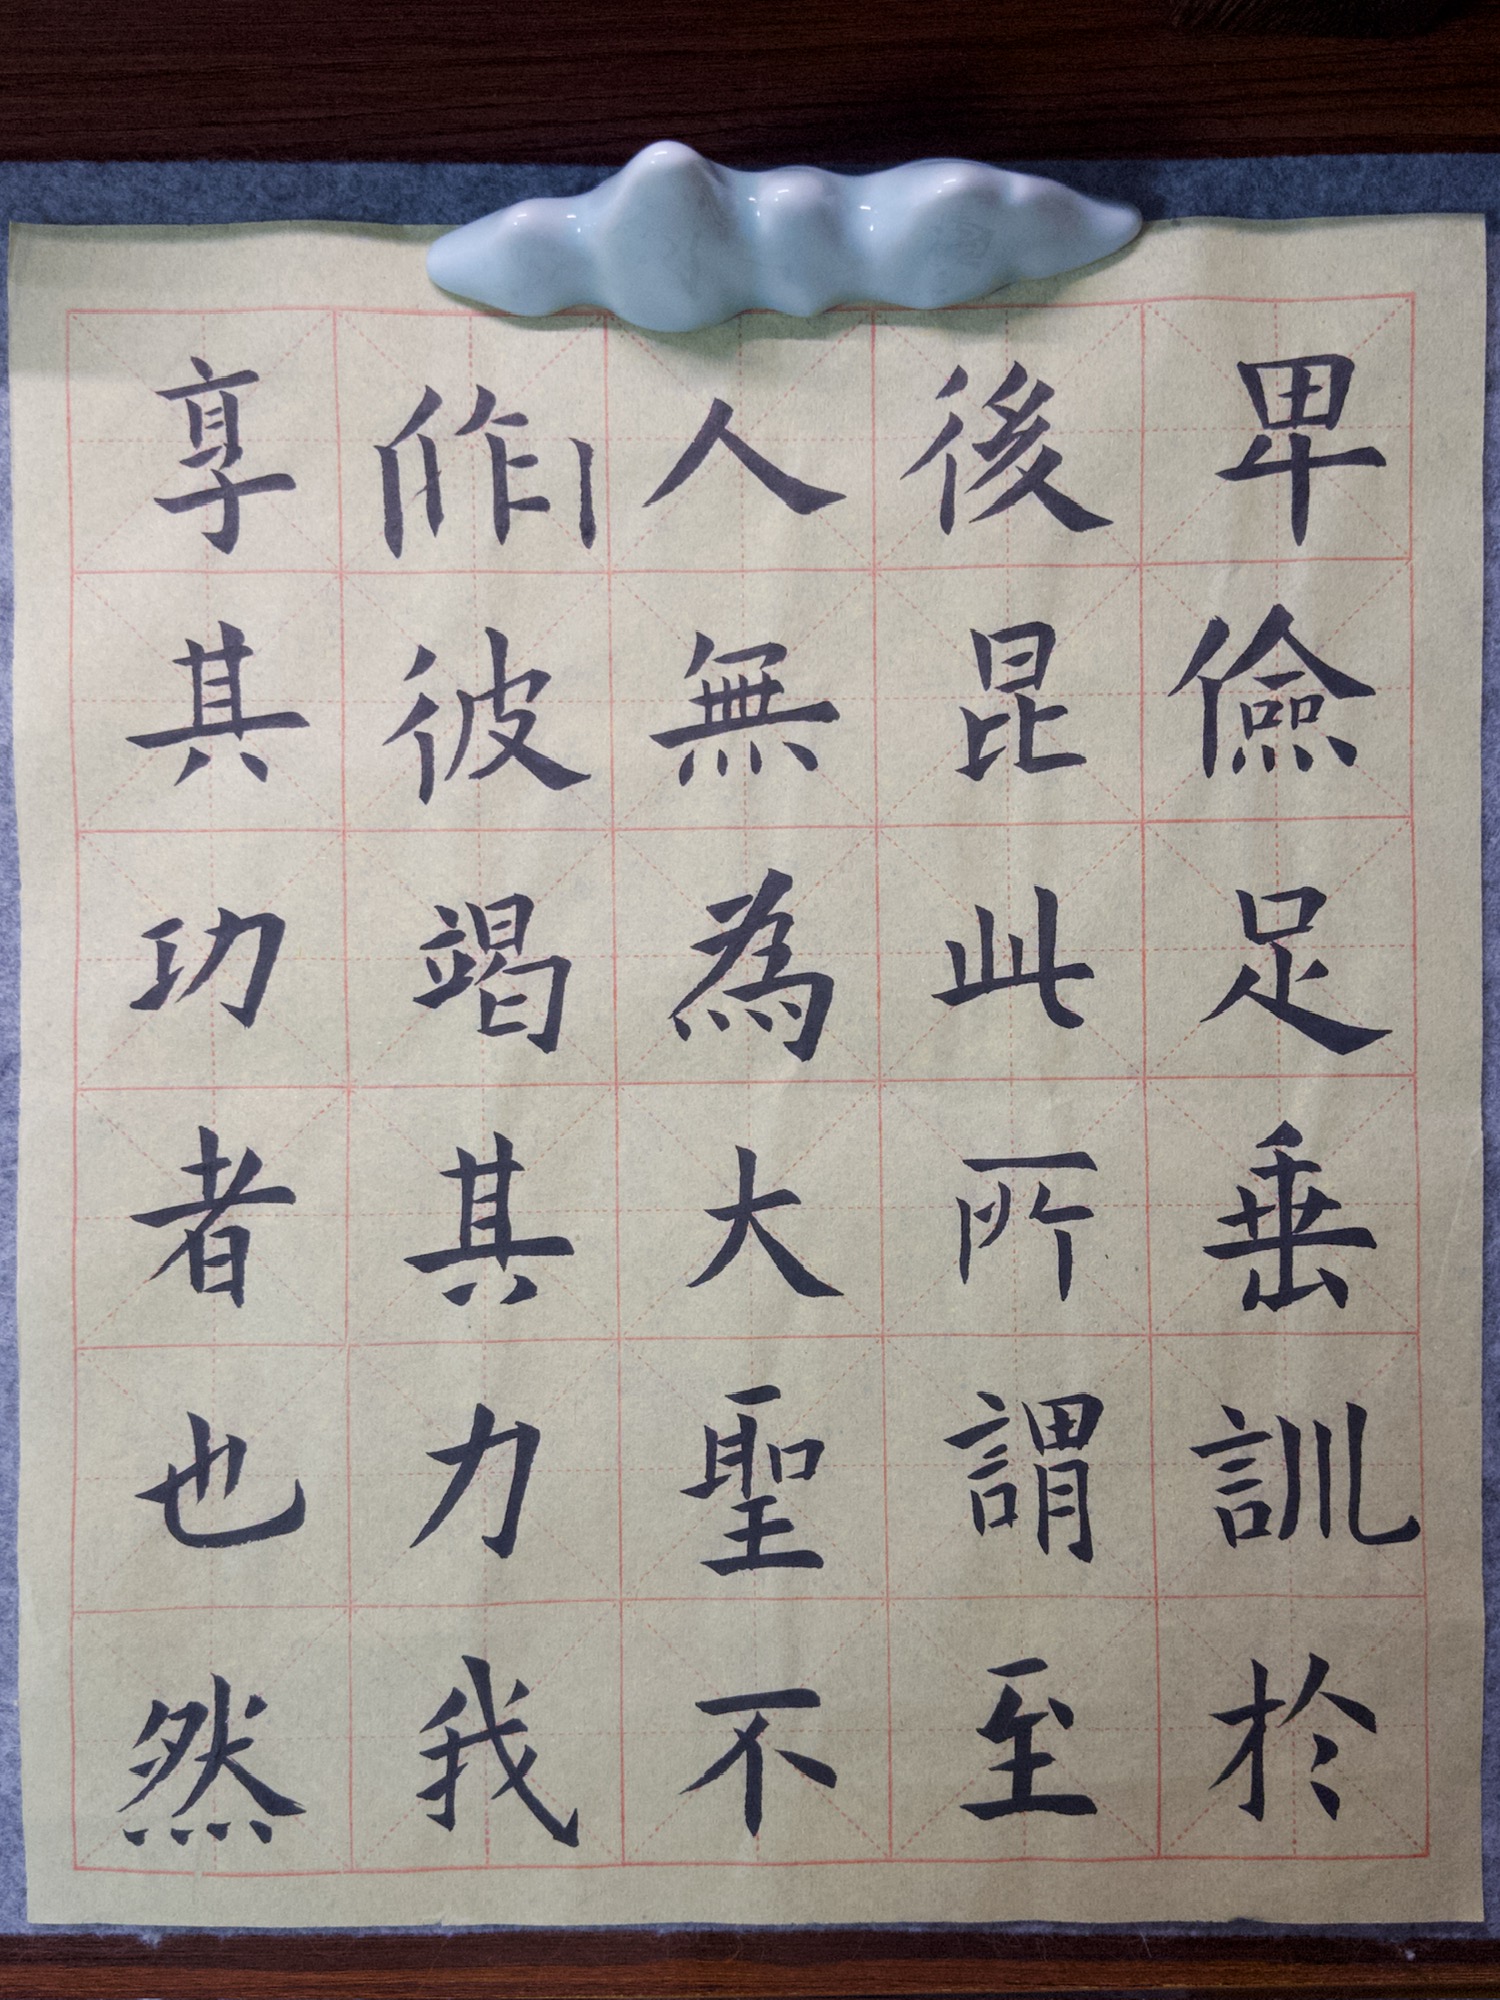 卑儉足垂訓於
後昆此所謂至
人無為大聖不
作彼竭其力我
享其功者也然